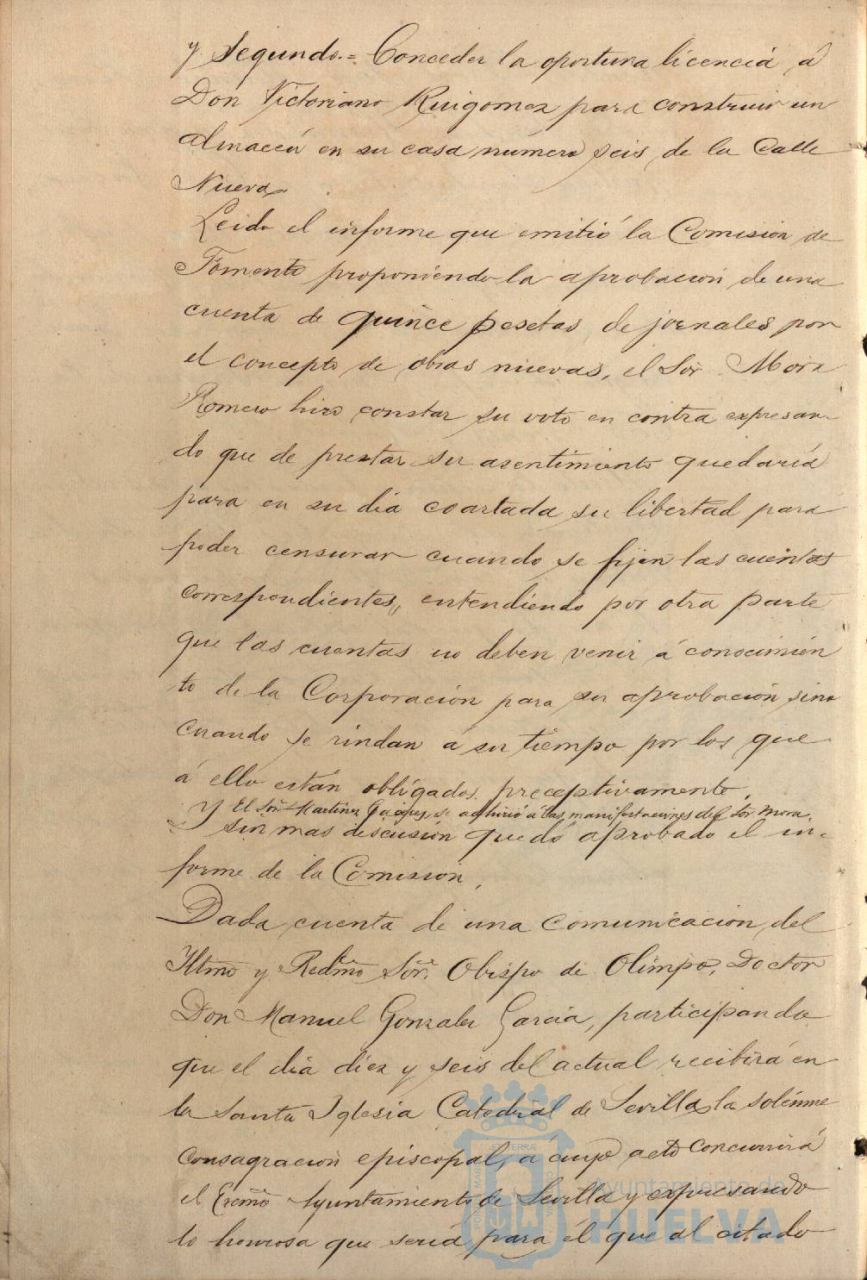 y Segundo.= Conceder la oportuna licencia á
Don Victoriano Ruigomez para construir un
almacén en su casa número seis de la Calle
Nueva.
Leido el informe que emitió la Comisión de
Fomento proponiendo la aprobacion de una
cuenta de quince pesetas, de jornales por
el concepto de obras nuevas, el Sor. Mora
Romero hizo constar su voto en contra expresan-
do que de prestar su asentimiento quedaría
para en su dia coartada su libertad para
poder censurar cuando se fijen las cuentas
correspondientes, entendiendo por otra parte
que las cuentas no deben venir á conocimien
to de la Corporación para su aprobación sino
cuando se rindan á su tiempo por los que
á ello están obligados preceptivamente.
Y El Sor. Martinez se adhirió á las manifestaciones del Sor Mora.
sin mas discusión quedó aprobado el in-
forme de la Comision.
Dada cuenta de una comunicación del
Iltmo y Redmo Sor. Obispo de Olimpo, Doctor
Don Manuel Gonzalez Garcia, participando
que el dia diez y seis del actual recibirá en
la Santa Iglesia Catedral de Sevilla la solemne
consagración episcopal, a cuyo acto concurrirá
el Excmo Ayuntamiento de Sevilla y expresando
lo honrosa que sería para él que al citado
Ayuntamiento de
HUELVA